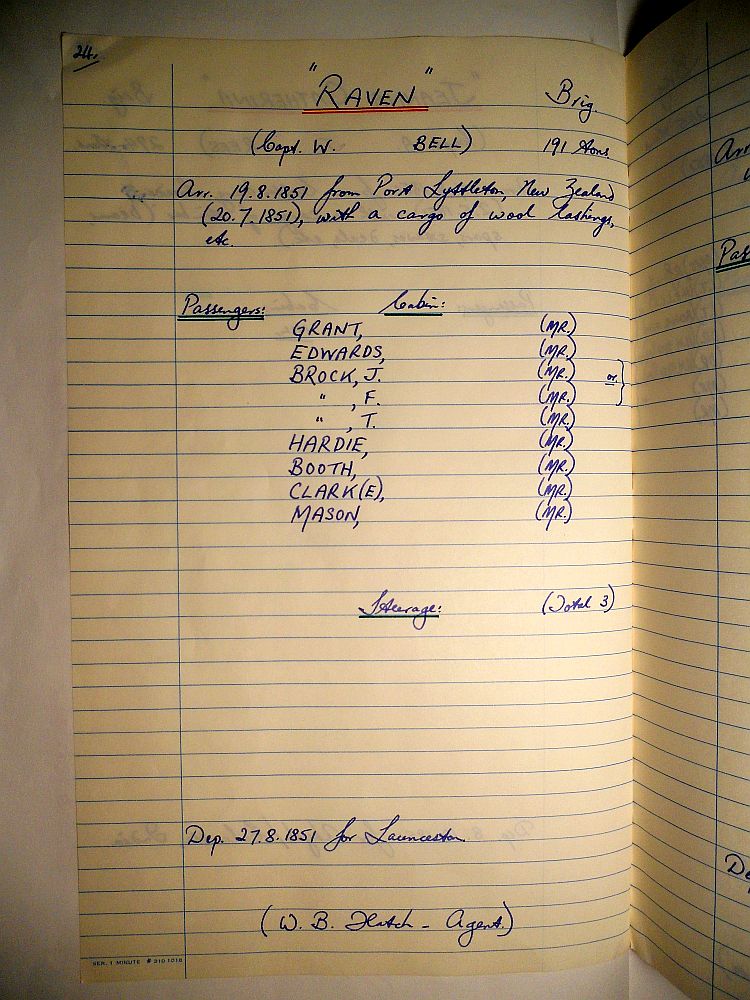 24.
"RAVEN" Brig
(Capt. W. BELL) 191 tons
Arr. 19.8.1851 from Port Lyttleton, New Zealand
(20.7.1851), with a cargo of wool lashings,
etc.
Passengers: Cabin:
GRANT, (MR.)
EDWARDS, (MR.)
BROCK, J. (MR.) or }
" , F. (MR.)
" , T. (MR.)
HARDIE, (MR.)
BOOTH, (MR.)
CLARK(E), (MR.)
MASON, (MR.)
Steerage: (Total 3)
Dep. 27.8.1851 for Launceston.
(W. B. Hatch - Agent.)
SER. 1 MINUTE # 210 1018
Arr
Pas
De